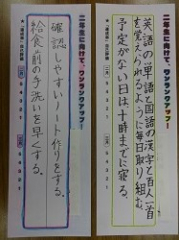 二年生に向けて、ワンランクアップ!
英語の単語と国語の漢字と百人一首
を覚えられるように毎日取り組む。
予定がない日は十時までに寝る。
二年生に向けて、ワンランクアップ!
確認しやすいノート作りをする。
給食前の手洗いを早くする。